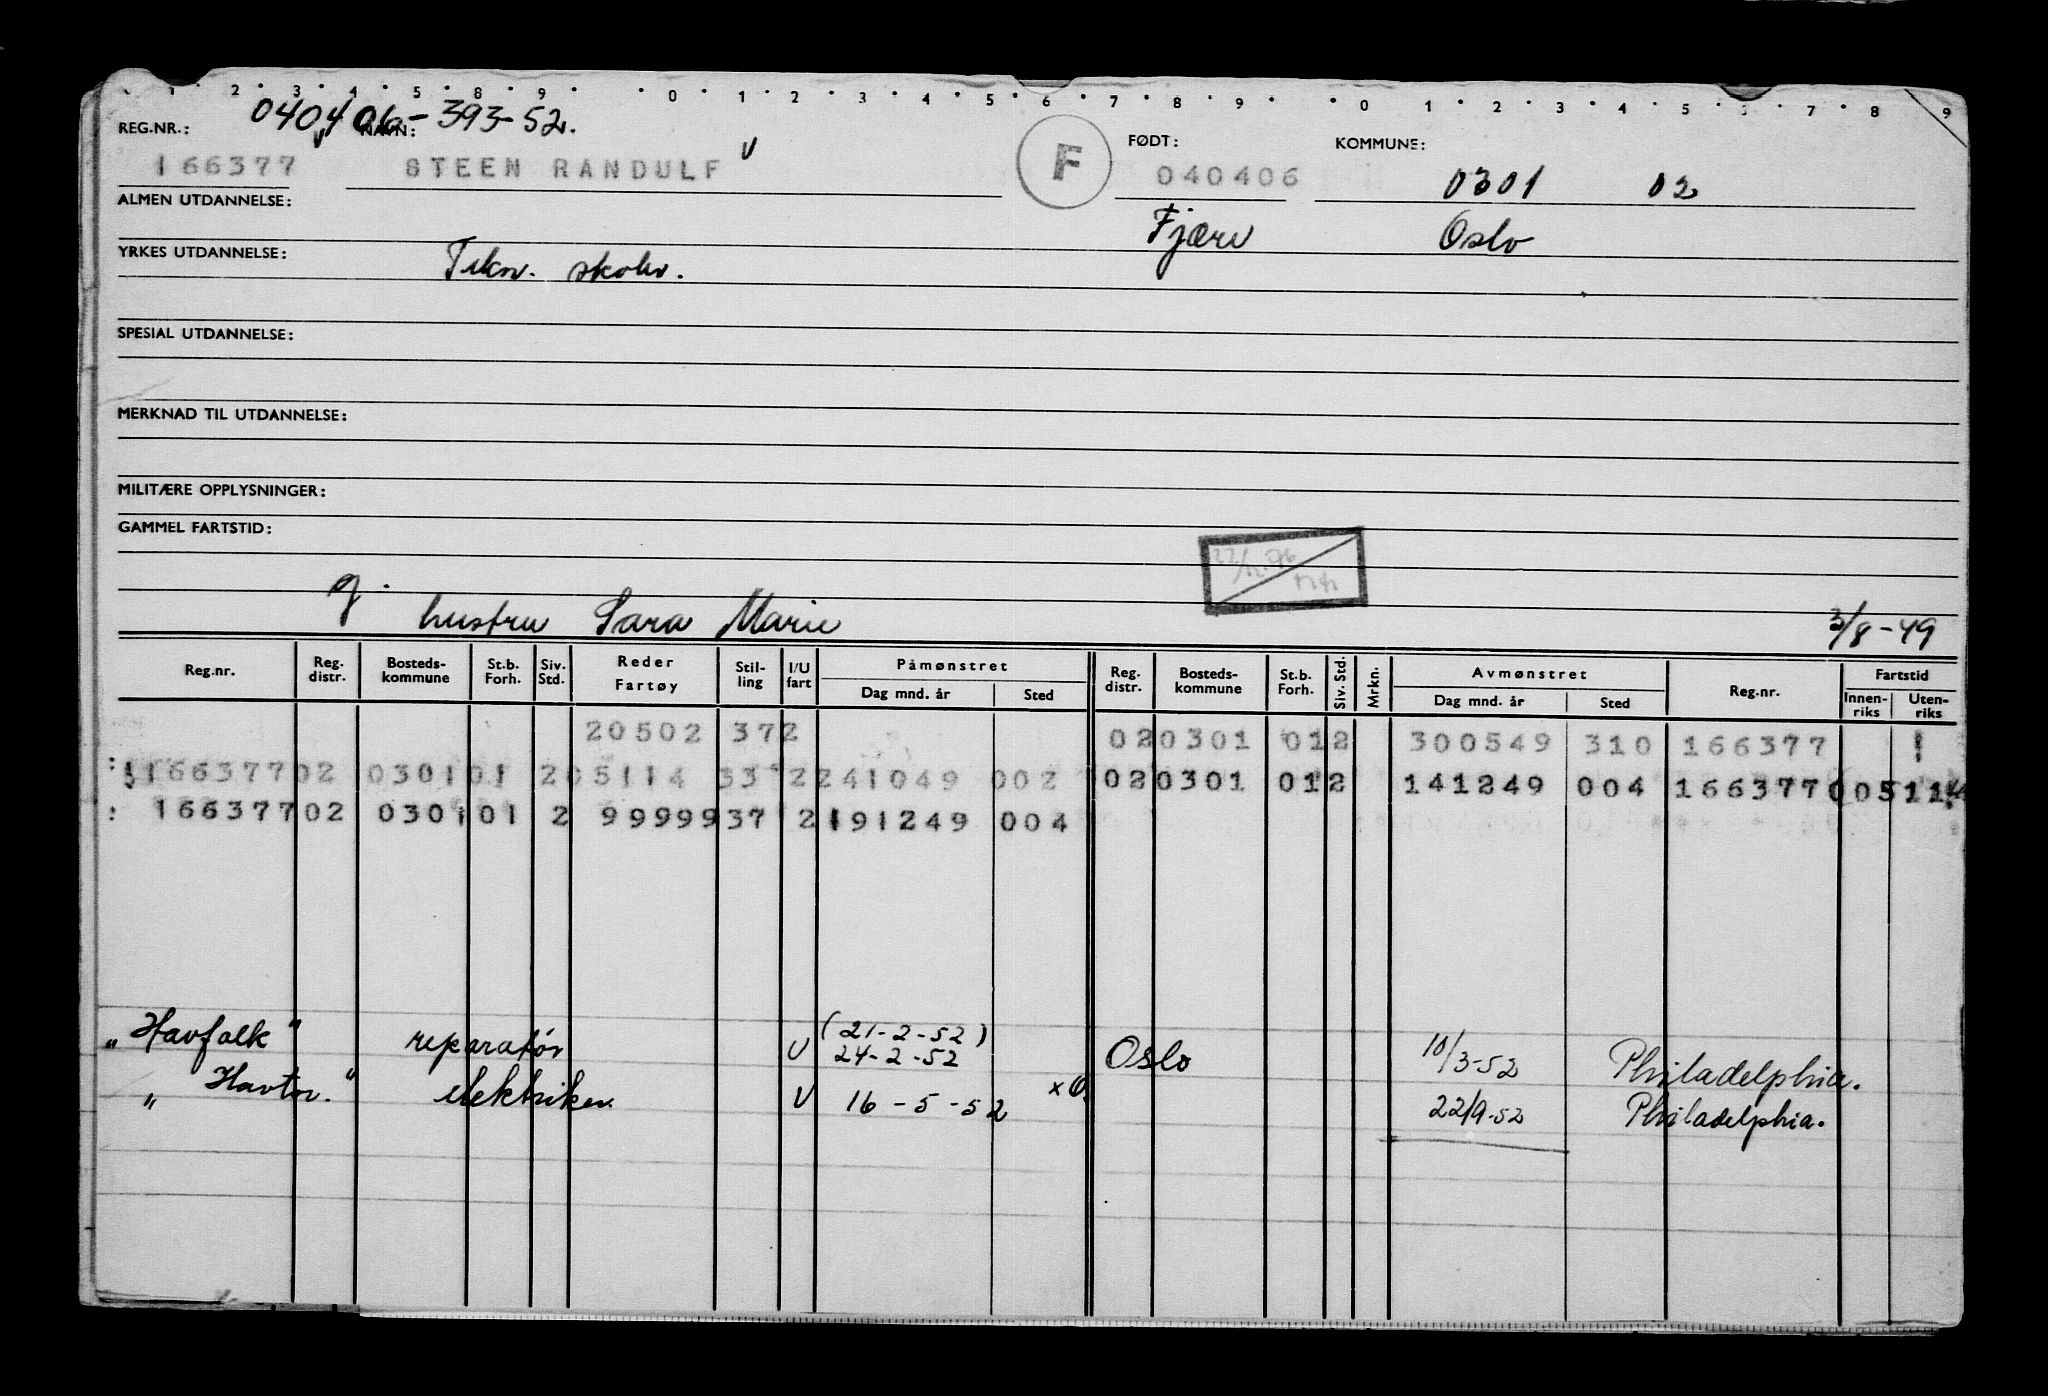 1 2 3 4 5 6 7 8 9 0 1 2 3 4 5 6 7 8 9 0 1 2 3 4 5 6 7 8 9
040406-393-52.
REG.NR.: NAVN: FØDT: KOMMUNE:
166377 STEEN RANDULF F 040406 0301 02
ALMEN UTDANNELSE: Fjære Oslo
YRKES UTDANNELSE: Tekn. skole.
SPESIAL UTDANNELSE:
MERKNAD TIL UTDANNELSE:
MILITÆRE OPPLYSNINGER:
GAMMEL FARTSTID:
g. hustru Sara Marie 3/8-49
Reg.nr. Reg. distr. Bosteds-kommune St.b. Forh. Siv. Std. Reder Fartøy Stil-ling I/U fart Påmønstret Dag mnd. år Sted Reg. distr. Bosteds-kommune St.b. Forh. Siv. Std. Mrkn. Avmønstret Dag mnd. år Sted Reg.nr. Fartstid Innen-riks Uten-riks
20502 372 020301 012 300549 310 166377
16637702 030101 205114 33 2241049 002 020301 012 141249 004 166377
16637702 030101 2 9999937 2191249 004
"Havfalk" reparatør U (21-2-52) 24-2-52 Oslo 10/3-52 Philadelphia.
"Havtor." elektriker U 16-5-52 x O. 22/9-52 Philadelphia.